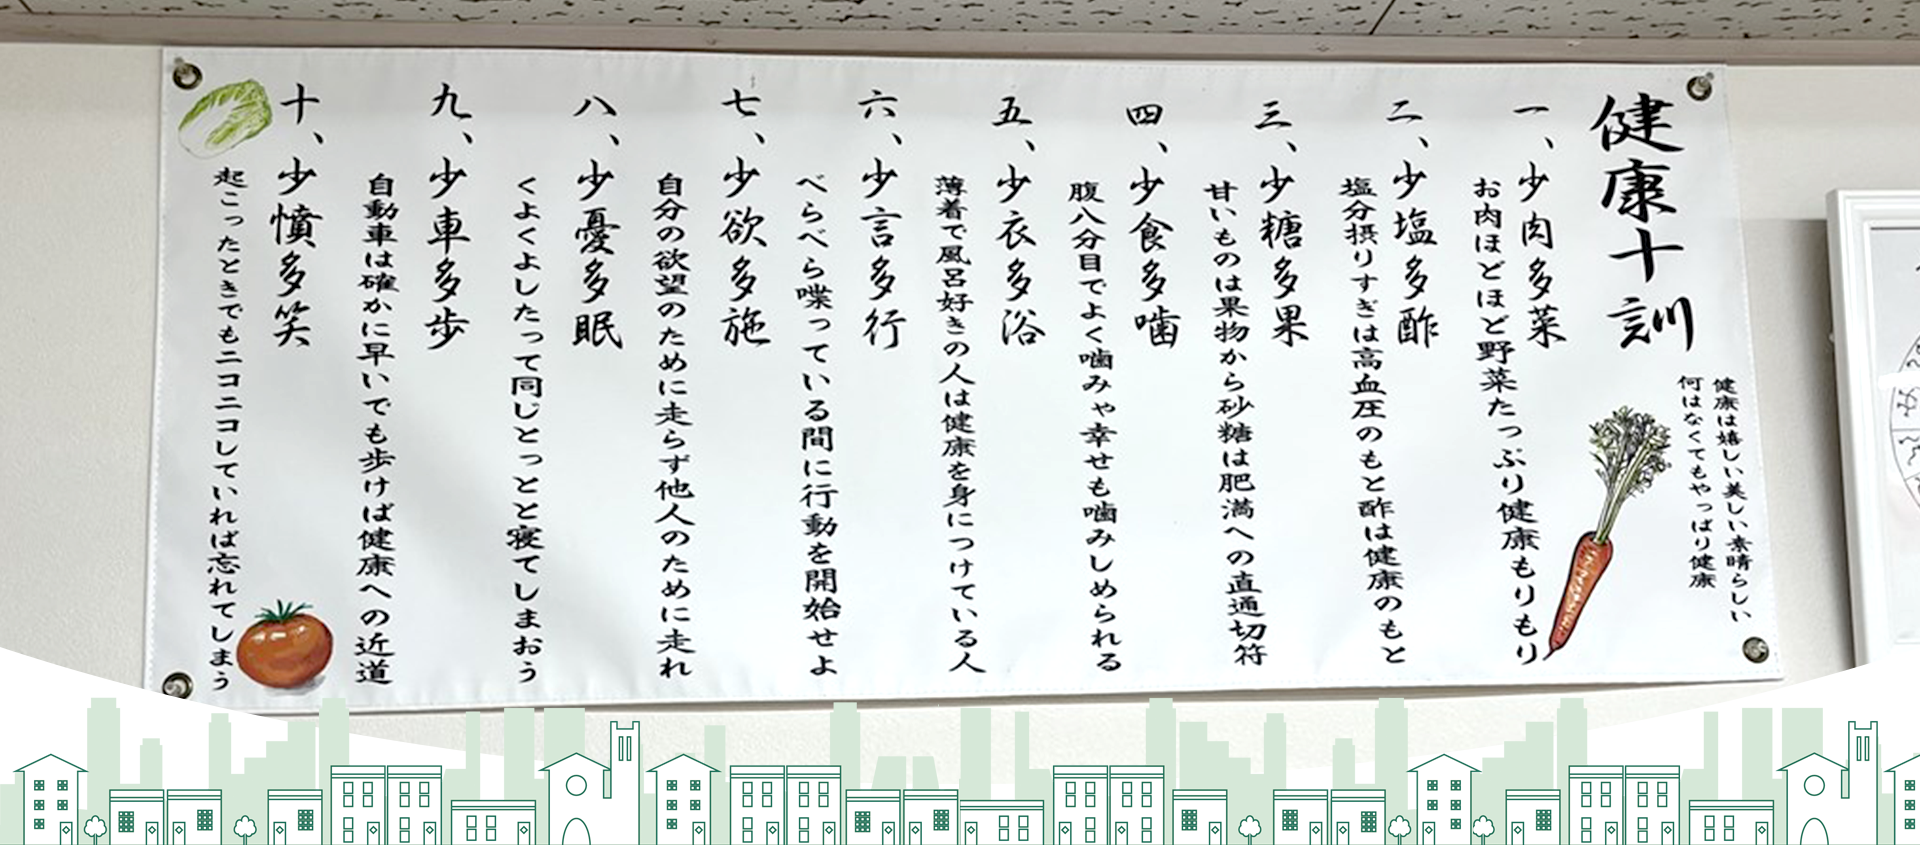 健康十訓
健康は嬉しい美しい素晴らしい
何はなくてもやっぱり健康
一、少肉多菜
お肉ほどほど野菜たっぷり健康もりもり
二、少塩多酢
塩分摂りすぎは高血圧のもと酢は健康のもと
三、少糖多果
甘いものは果物から砂糖は肥満への直通切符
四、少食多噛
腹八分目でよく噛みゃ幸せも噛みしめられる
五、少衣多浴
薄着で風呂好きの人は健康を身につけている人
六、少言多行
べらべら喋っている間に行動を開始せよ
七、少欲多施
自分の欲望のために走らず他人のために走れ
八、少憂多眠
くよくよしたって同じとっとと寝てしまおう
九、少車多歩
自動車は確かに早いでも歩けば健康への近道
十、少憤多笑
起こったときでもニコニコしていれば忘れてしまう